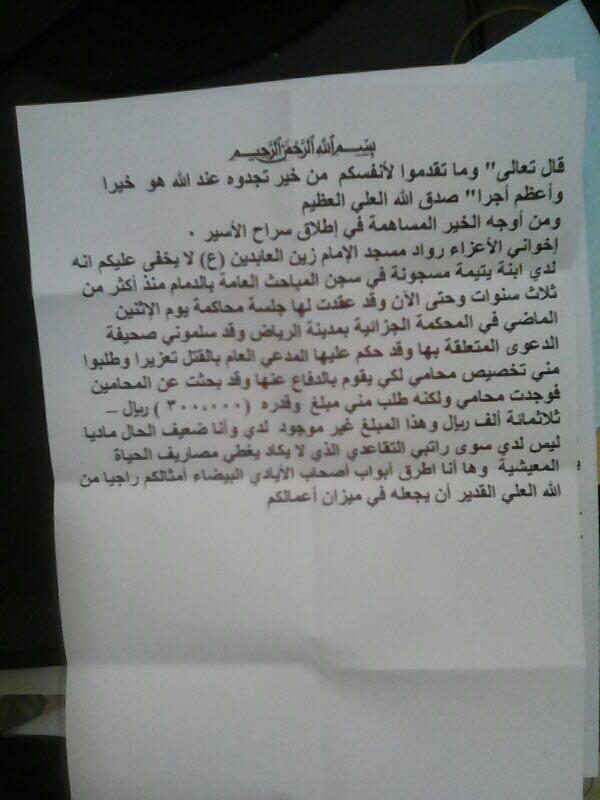 بسم الله الرحمن الرحيم
قال تعالى" وما تقدموا لأنفسكم من خير تجدوه عند الله هو خيرا
وأعظم أجرا" صدق الله العلي العظيم
ومن أوجه الخير المساهمة في إطلاق سراح الأسير .
إخواني الأعزاء رواد مسجد الإمام زين العابدين (ع) لا يخفى عليكم انه
لدي ابنة يتيمة مسجونة في سجن المباحث العامة بالدمام منذ أكثر من
ثلاث سنوات وحتى الآن وقد عقدت لها جلسة محاكمة يوم الإثنين
الماضي في المحكمة الجزائية بمدينة الرياض وقد سلموني صحيفة
الدعوى المتعلقة بها وقد حكم عليها المدعي العام بالقتل تعزيرا وطلبوا
مني تخصيص محامي لكي يقوم بالدفاع عنها وقد بحثت عن المحامين
فوجدت محامي ولكنه طلب مني مبلغ وقدره (٣٠٠,٠٠٠) ريال –
ثلاثمائة ألف ريال وهذا المبلغ غير موجود لدي وأنا ضعيف الحال ماديا
ليس لدي سوى راتبي التقاعدي الذي لا يكاد يغطي مصاريف الحياة
المعيشية وها أنا اطرق أبواب أصحاب الأيادي البيضاء أمثالكم راجيا من
الله العلي القدير أن يجعله في ميزان أعمالكم